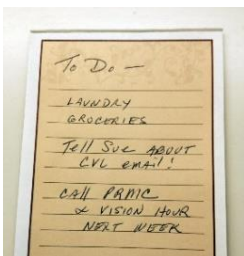 To Do —
LAUNDRY
GROCERIES
Tell Sue ABOUT
CVL EMAIL!
CALL PRMIC
& VISION HOUR
NEXT WEEK